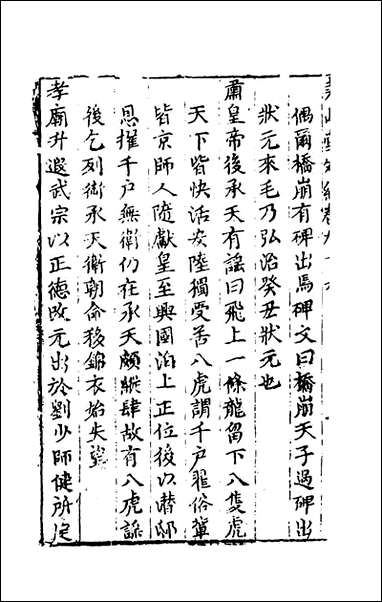 偶爾橋崩有碑出焉碑文曰橋崩天子過碑出
狀元來毛乃弘治癸丑狀元也
肅皇帝後承天有謡曰飛上一條龍留下八隻虎
天下皆快活安陸獨受苦八虎謂千户翟俗軰
皆京師人隨獻皇至興國洎上正位後以潛邸
恩擢千户無衛仍在承天頗縱肆故有八虎謡
後乞列銜承天衛朝命移錦衣始失望
孝廟升遐武宗以正德改元出於劉少師健所定